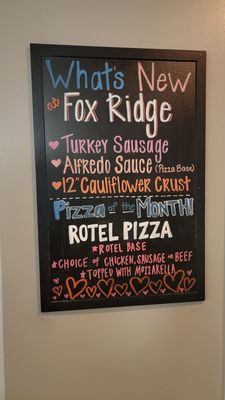 What's New
at Fox Ridge
Turkey Sausage
Alfredo Sauce (Pizza Base)
12" Cauliflower Crust
Pizza of the Month!
ROTEL PIZZA
*ROTEL BASE
*CHOICE OF CHICKEN, SAUSAGE OR BEEF
*TOPPED WITH MOZZARELLA